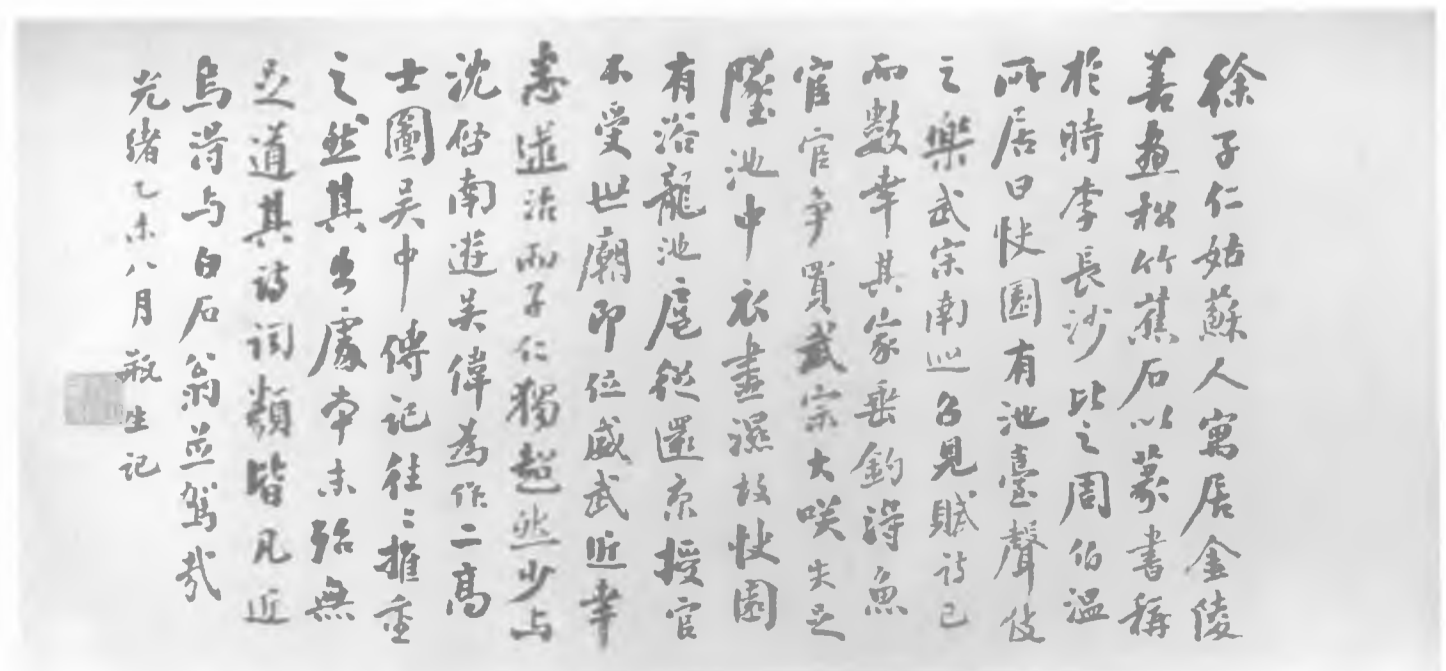 徐子仁姑蘇人寓居金陵
善畫松竹蕉石以篆書稱
於時李長沙比之周伯溫
所居曰快園有池臺聲伎
之樂武宗南巡召見賦詩已
而數幸其家垂釣得魚
宦官爭買武宗大咲失足
墜池中衣盡濕故快園
有浴龍池扈從還京授官
不受世廟即位威武近幸
悉逮治而子仁獨超然少与
沈啓南遊吴偉為作二高
士圖吴中傳記往〻推重
之然其出處本末殆無
足道其詩詞類皆凡近
烏得与白石翁並駕哉
光緒乙未八月 瓶生記